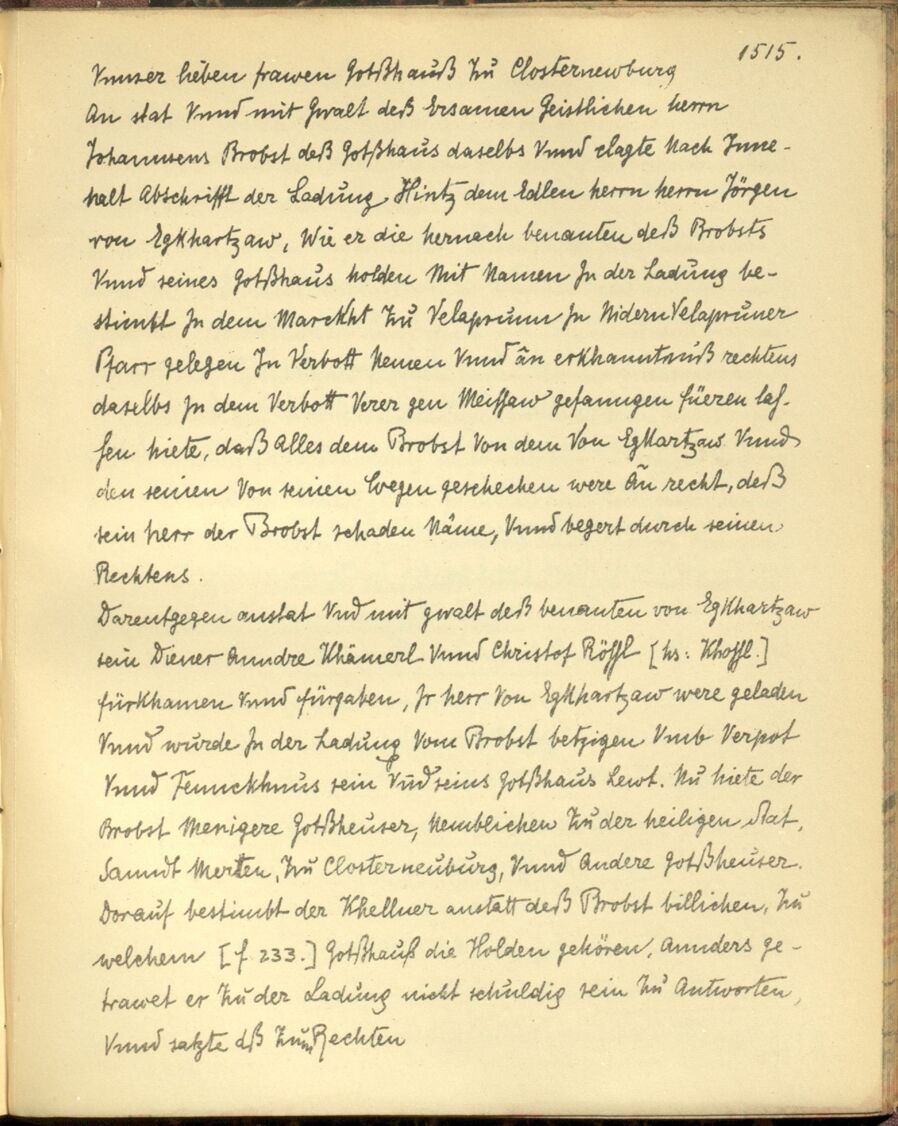 1515.
Vnnser lieben frawen Gotßhauß Zu Closternewburg
An stat Vnnd mit Gwalt deß Ersamen Geistlichen herrn
Johannsens Brobst deß Gotßhaus daselbs Vnnd clagte Nach Inne-
halt Abschrifft der Ladung, Hintz dem Edlen herrn herrn Jörgen
von Egkhartzaw, Wie er die hernach benanten deß Brobsts
Vnnd seines Gotßhaus holden Mit Namen In der Ladung be-
stimbt In dem Marckht Zu Velaprunn In Nidern Velapruner
Pfarr gelegen In Verbott Nemen Vnnd än erkhanntnuß rechtens
daselbs In dem Verbott Verer gen Meissaw gefanngen füeren las-
sen hiete, daß Alles dem Brobst Von dem Von Egkhartzaw Vnnd
den seinen Von seinen Wegen geschechen were Än recht, deß
sein herr der Brobst schaden Näme, Vnnd begert durch seinen
Rechtens.
Darentgegen anstat Vnd mit gwalt deß benanten von Egkhartzaw
sein Diener Anndre Khämerl Vnnd Christof Rössl [hs: Khossl.]
fürkhamen Vnnd fürgaben, Ir herr Von Egkhartzaw were geladen
Vnnd wurde In der Ladung Vom Brobst betzigen Vmb Verpot
Vnnd Fennckhnus sein Vnd seins Gotßhaus Lewt. Nu hiete der
Brobst Menigere Gotßheuser, Nemblichen Zu der heiligen stat,
Sanndt Merten, Zu Closterneuburg, Vnnd Andere Gotßheuser.
Dorauf bestimbt der Khellner anstatt deß Brobst billichen, Zu
welchem [f. 233.] Gotßhauß die Holden gehören, Annders ge-
trawet er Zu der Ladung nicht schuldig sein Zu Antworten,
Vnnd satzte dß Zum Rechten